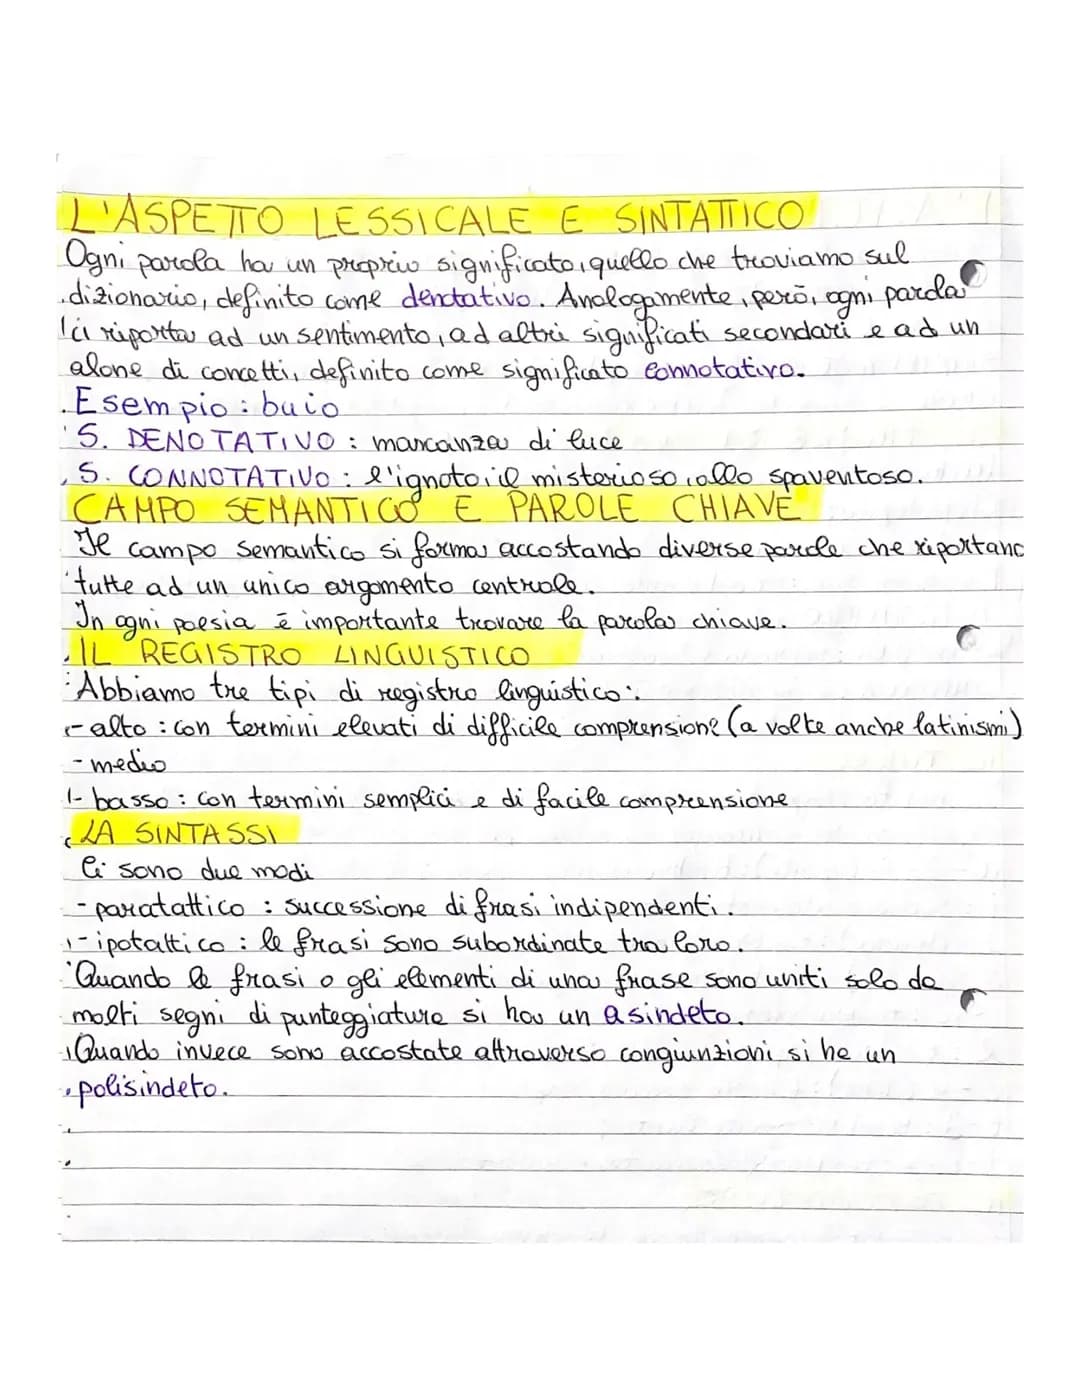 L'ASPETTO LESSICALE E SINTATTICO
Ogni parola ha un proprio significato, quello che troviamo sul
dizionario, definito come denotativo. Analogamente, però, ogni parola
ci riporta ad un sentimento, ad altri significati secondari e ad un
alone di concetti, definito come significato connotativo.
Esempio: buio
S. DENOTATIVO: mancanza di luce
S. CONNOTATIVO: l'ignoto, il misterioso, allo spaventoso.
CAMPO SEMANTICO E PAROLE CHIAVE
Il campo semantico si forma accostando diverse parole che riportano
tutte ad un unico argomento centrale.
In ogni poesia è importante trovare la parola chiave.
IL REGISTRO LINGUISTICO
Abbiamo tre tipi di registro linguistico:
- alto: con termini elevati di difficile comprensione (a volte anche latinismi)
- medio
- basso: con termini semplici e di facile comprensione
LA SINTASSI
Ci sono due modi
- paratattico: successione di frasi indipendenti.
- ipotattico: le frasi sono subordinate tra loro.
Quando le frasi o gli elementi di una frase sono uniti solo da
molti segni di punteggiatura si ha un asindeto.
Quando invece sono accostate attraverso congiunzioni si ha un
polisindeto.